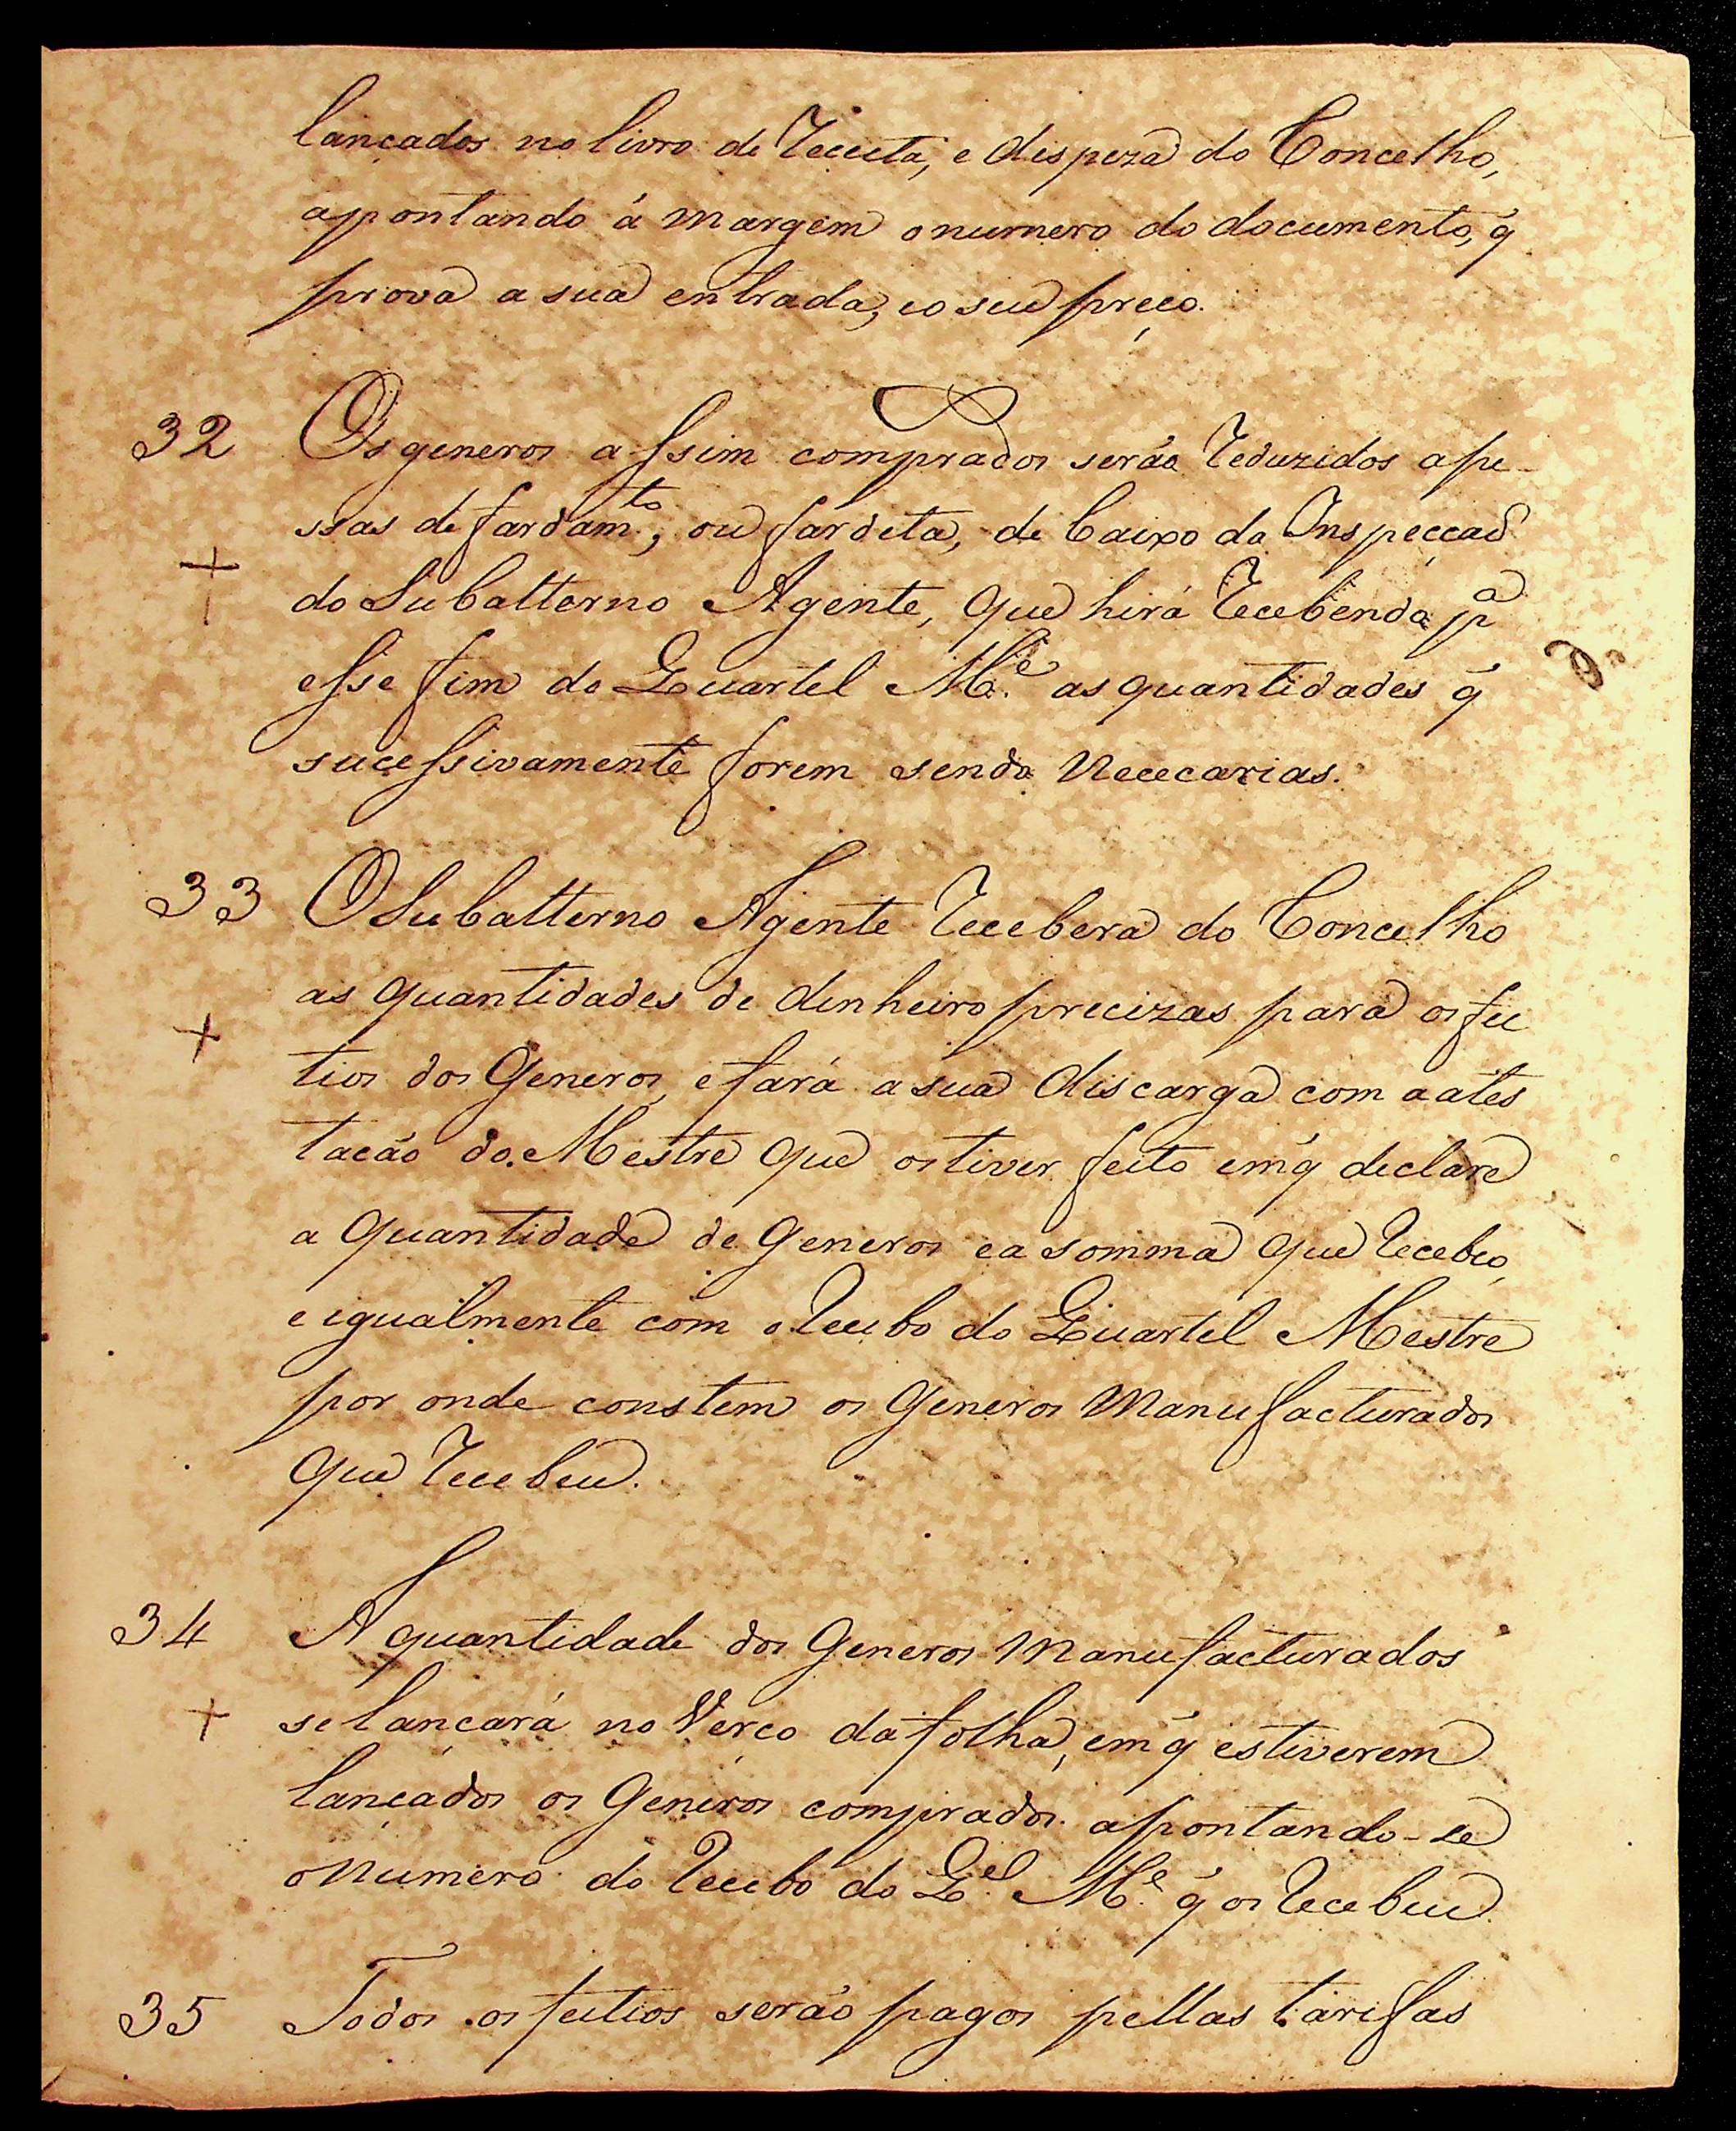 lançados no livro de Receita, e dispeza do Concelho,
apontando á margem o numero do documento, q̃
prova a sua entrada, e o seu preço.
32 Os generos assim comprados serão Reduzidos a pe-
ssas de fardam.to, ou fardeta, de baixo da Inspecçaõ
+ do Subalterno Agente, que hirá Recebendo p.a
esse fim do Quartel M.e as quantidades q̃
sucessivamente forem sendo Nececarias.
33 O Subalterno Agente Recebera do Concelho
as quantidades de dinheiro precizas para os fei
+ tios dos Generos, e fará a sua discarga com a ates
tacão do Mestre que os tiver feito em q̃ declare
a quantidade de Generos e a somma que Recebeo,
e igualmente com o Recibo do Quartel Mestre
por onde constem os Generos Manufacturados
que Recebeu.
34 A quantidade dos Generos Manufacturados
+ se lançará no Verço da folha, em q̃ estiverem
lançados os Generos comprados apontando-se
o Numero do Recibo do Q.el M.e q̃ os Recebeu
35 Todos os feitios serão pagos pellas tarifas